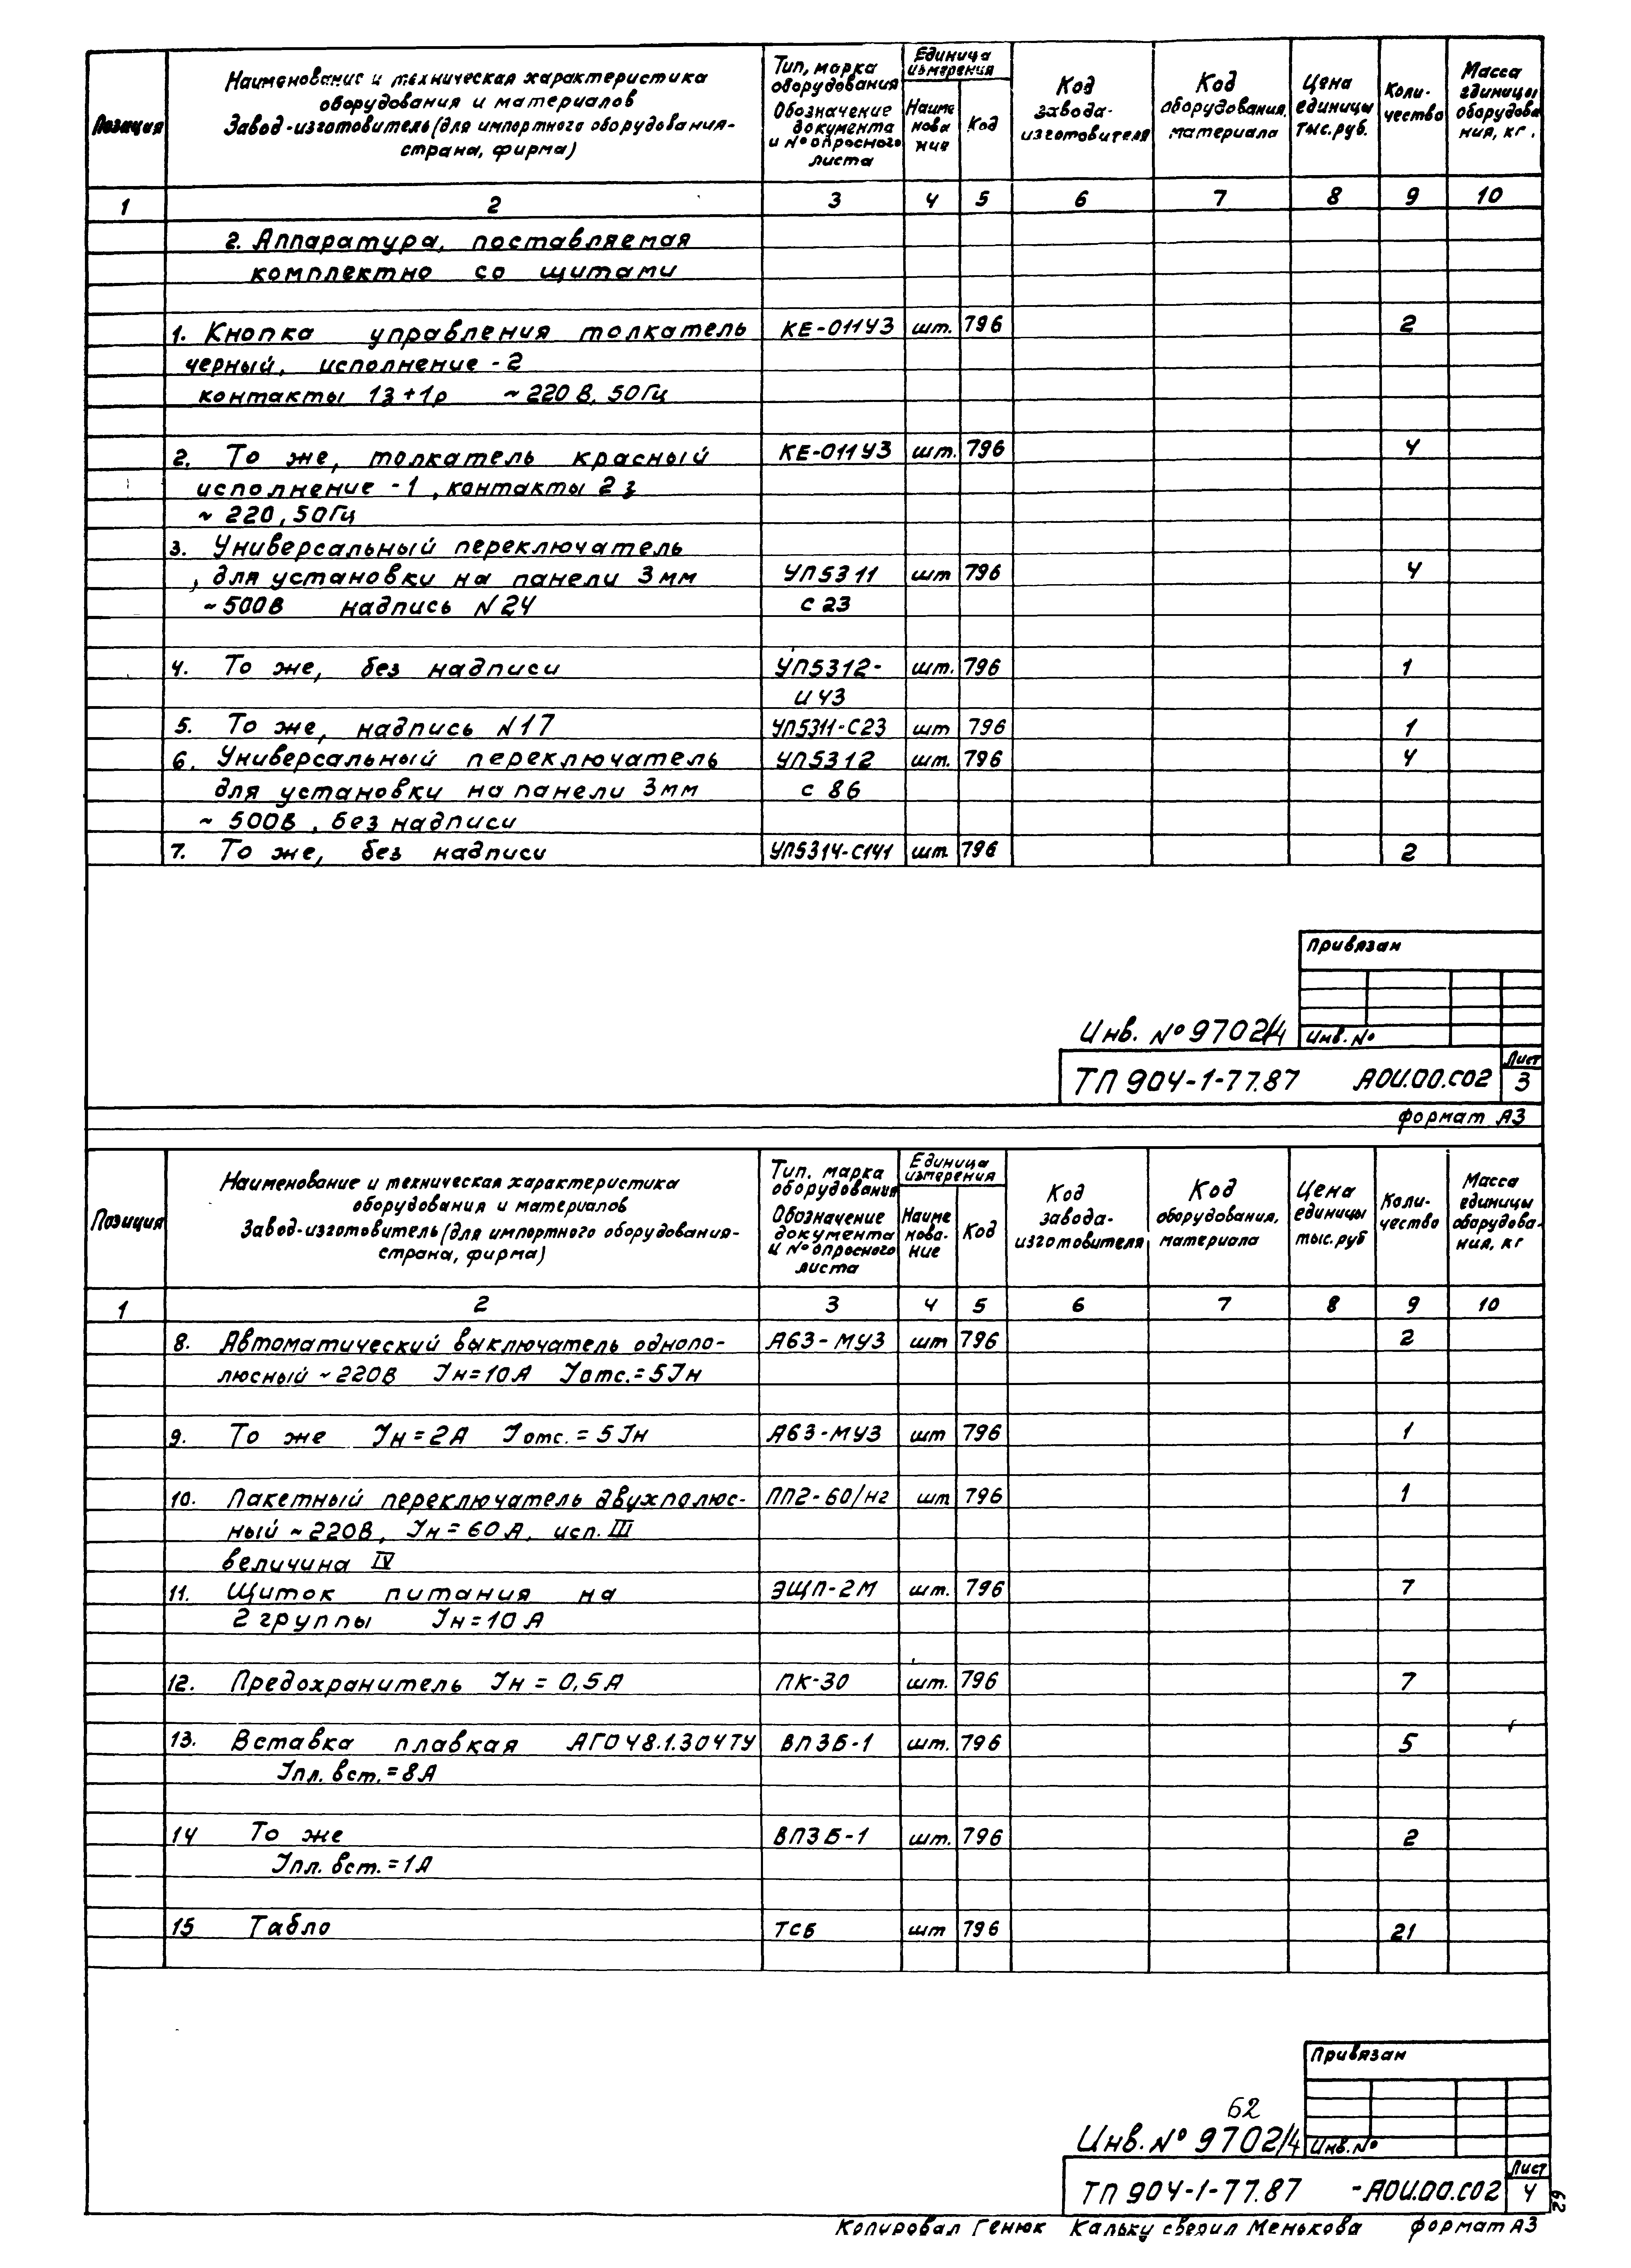 Позиция
Наименование и техническая характеристика
оборудования и материалов
Завод-изготовитель (для импортного оборудования-
страна, фирма)
Тип, марка
оборудования
Обозначение
документа
и № опросного
листа
Единица
измерения
Наиме
нова
ние
Код
Код
завода-
изготовителя
Код
оборудования,
материала
Цена
единицы
тыс.руб.
Коли-
чество
Масса
единицы
оборудова
ния, кг.
1 2 3 4 5 6 7 8 9 10
2. Аппаратура, поставляемая
комплектно со щитами
1. Кнопка управления толкатель КЕ-011У3 шт. 796 2
черный, исполнение - 2
контакты 1з+1р ~220В, 50Гц
2. То же, толкатель красный КЕ-011У3 шт. 796 4
исполнение -1, контакты 2з
~ 220, 50Гц
3. Универсальный переключатель
, для установки на панели 3мм УП5311 шт 796 4
~500В надпись N24 С23
4. То же, без надписи УП5312- шт. 796 1
И43
5. То же, надпись N17 УП5311-С23 шт 796 1
6. Универсальный переключатель УП5312 шт. 796 4
для установки на панели 3мм С 86
~ 500В, без надписи
7. То же, без надписи УП5314-С141 шт. 796 2
Привязан
Инв. № 9702/4
Инв. №
ТП 904-1-77.87 АОИ.00.С02
Лист
3
формат А3
Позиция
Наименование и техническая характеристика
оборудования и материалов
Завод-изготовитель (для импортного оборудования-
страна, фирма)
Тип. марка
оборудования
Обозначение
документа
и № опросного
листа
Единица
измерения
Наиме
нова-
ние
Код
Код
завода-
изготовителя
Код
оборудования,
материала
Цена
единицы
тыс.руб
Коли-
чество
Масса
единицы
оборудова-
ния, кг
1 2 3 4 5 6 7 8 9 10
8. Автоматический выключатель однопо- А63-МУ3 шт 796 2
люсный ~220В Iн=10А Iотс.=5Iн
9. То же Iн=2А Iотс.=5Iн А63-МУ3 шт 796 1
10. Пакетный переключатель двухполюс- ПП2-60/н2 шт 796 1
ный ~220В, Iн=60А, исп. III
величина IV
11. Щиток питания на ЭЩП-2М шт. 796 7
2 группы Iн=10А
12. Предохранитель Iн = 0,5А ПК-30 шт. 796 7
13. Вставка плавкая АГО 48.1.304ТУ ВП3Б-1 шт. 796 5
Iпл. вст.=8А
14 То же ВП3Б-1 шт. 796 2
Iпл. вст.=1А
15 Табло ТСБ шт 796 21
Привязан
62
Инв. № 9702/4
Инв. №
ТП 904-1-77.87 -АОИ.00.С02
Лист
4
62
Копировал Генюк Кальку сверил Менькова формат А3